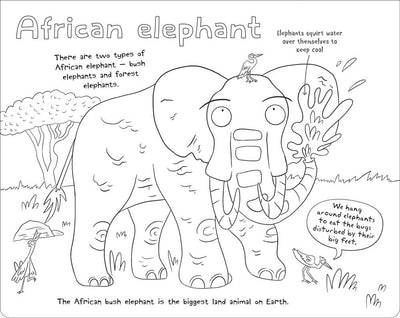 African elephant
There are two types of
African elephant – bush
elephants and forest
elephants.
Elephants squirt water
over themselves to
keep cool
We hang
around elephants
to eat the bugs
disturbed by their
big feet.
The African bush elephant is the biggest land animal on Earth.